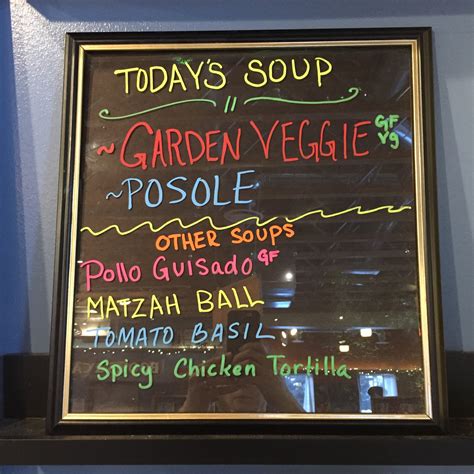 TODAY'S SOUP
~GARDEN VEGGIE GF
vg
~POSOLE
OTHER SOUPS
Pollo Guisado GF
MATZAH BALL
TOMATO BASIL
Spicy Chicken Tortilla